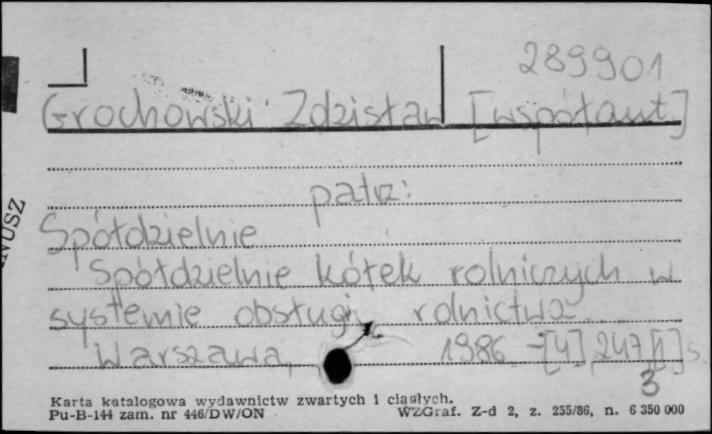 289901
Grochowski Zdzisław [współaut]
patrz:
Spółdzielnie
Spółdzielnie kółek rolniczych w
systemie obsługi rolnictwa
Warszawa, 1986 -[4], 247, [1] s
3
Karta katalogowa wydawnictw zwartych i ciągłych.
Pu-B-144 zam. nr 446/DW/ON WZGraf. Z-d 2, z. 255/86, n. 6 350 000